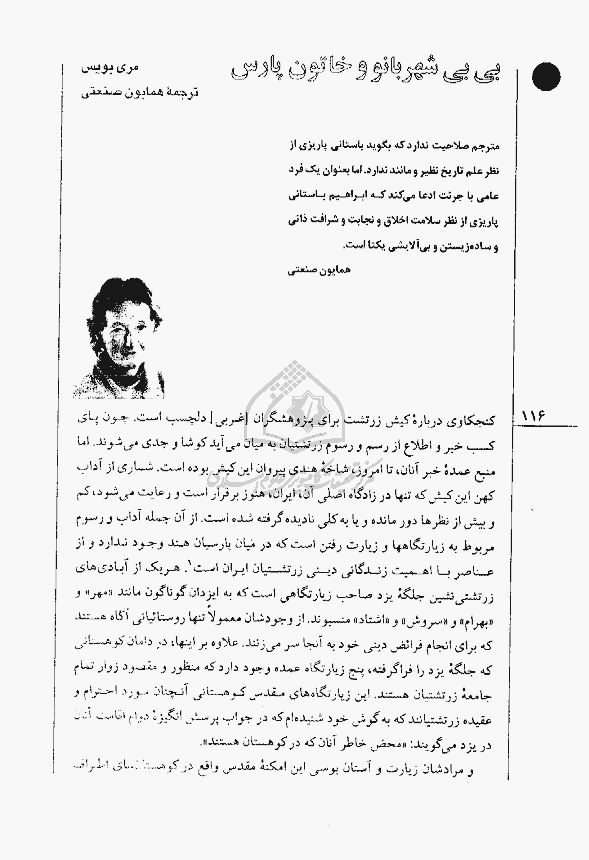 بی بی شهربانو و خاتون پارس
مری بویس
ترجمهٔ همایون صنعتی
مترجم صلاحیت ندارد که بگوید باستانی پاریزی از
نظر علم تاریخ نظیر و مانند ندارد. اما بعنوان یک فرد
عامی با جرئت ادعا می‌کند که ابراهیم باستانی
پاریزی از نظر سلامت اخلاق و نجابت و شرافت ذاتی
و ساده‌زیستن و بی‌آلایشی یکتا است.
همایون صنعتی
۱۱۶
کنجکاوی دربارهٔ کیش زرتشت برای پژوهشگران [غربی] دلچسب است. چون پای
کسب خبر و اطلاع از رسم و رسوم زرتشتیان به میان می‌آید کوشا و جدی می‌شوند. اما
منبع عمدهٔ خبر آنان، تا امروز، شاخهٔ هندی پیروان این کیش بوده است. شماری از آداب
کهن این کیش که تنها در زادگاه اصلی آن، ایران، هنوز برقرار است و رعایت می‌شود، کم
و بیش از نظرها دور مانده و یا به کلی نادیده گرفته شده است. از آن جمله آداب و رسوم
مربوط به زیارتگاهها و زیارت رفتن است که در میان پارسیان هند وجود ندارد و از
عناصر با اهمیت زندگانی دینی زرتشتیان ایران است۱. هر یک از آبادی‌های
زرتشتی‌نشین جلگهٔ یزد صاحب زیارتگاهی است که به ایزدان گوناگون مانند «مهر» و
«بهرام» و «سروش» و «اشتاد» منسبوند. از وجودشان معمولاً تنها روستائیانی آگاه هستند
که برای انجام فرائض دینی خود به آنجا سر می‌زنند. علاوه بر اینها، در دامان کوهستانی
که جلگهٔ یزد را فراگرفته، پنج زیارتگاه عمده وجود دارد که منظور و مقصود زوار تمام
جامعهٔ زرتشتیان هستند. این زیارتگاه‌های مقدس کوهستانی آنچنان مورد احترام و
عقیده زرتشتیانند که به گوش خود شنیده‌ام که در جواب پرسش انگیزهٔ دوام اقامت آنان
در یزد می‌گویند: «محض خاطر آنان که در کوهستان هستند».
و مرادشان زیارت و آستان بوسی این امکنهٔ مقدس واقع در کوهستان‌های اطراف